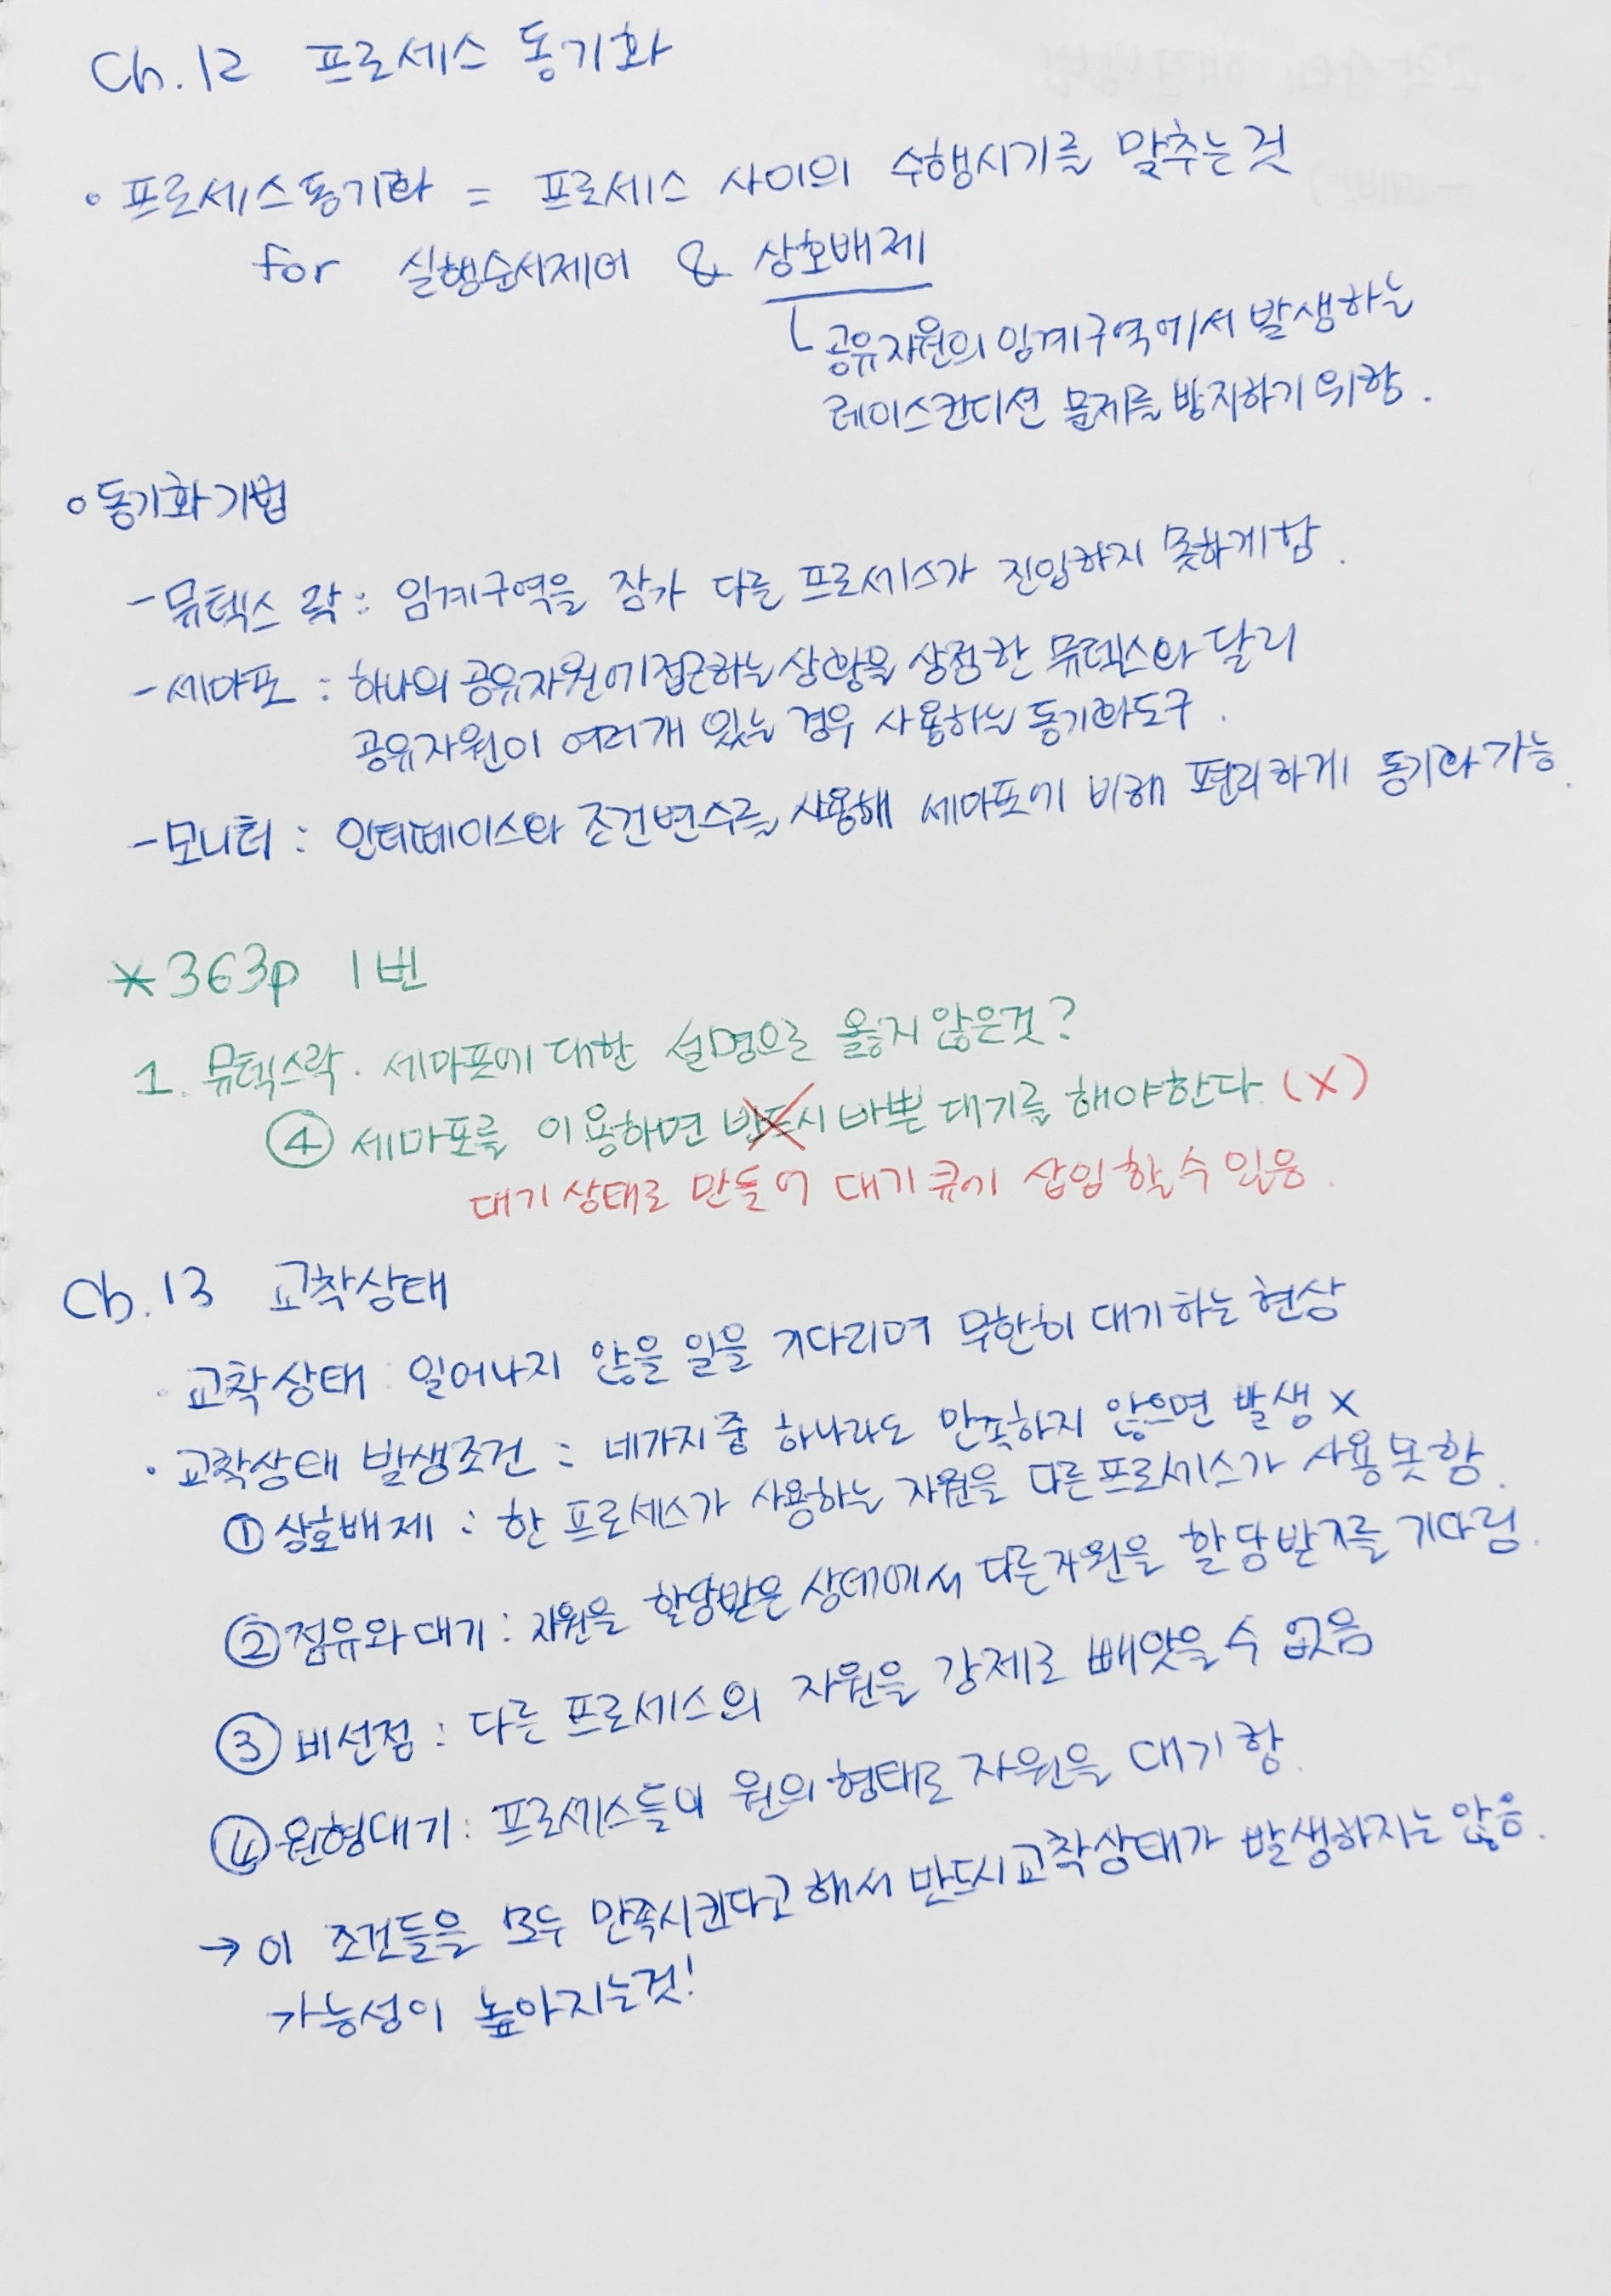 Ch.12 프로세스 동기화
• 프로세스동기화 = 프로세스 사이의 수행시기를 맞추는것
for 실행순서제어 & 상호배제
ㄴ공유자원의 임계구역에서 발생하는
레이스컨디션 문제를 방지하기 위함.
• 동기화기법
- 뮤텍스 락 : 임계구역을 잠가 다른 프로세스가 진입하지 못하게함.
- 세마포 : 하나의 공유자원에 접근하는 상황을 상정한 뮤텍스와 달리
공유자원이 여러개 있는 경우 사용하는 동기화도구.
- 모니터 : 인터페이스와 조건변수를 사용해 세마포에 비해 편리하게 동기화가능.
*363p 1번
1. 뮤텍스락. 세마포에 대한 설명으로 옳지 않은것?
④ 세마포를 이용하면 반드시 바쁜 대기를 해야한다. (X)
대기상태로 만들어 대기큐에 삽입할수 있음.
Ch.13 교착상태
• 교착상태 : 일어나지 않을 일을 기다리며 무한히 대기하는 현상
• 교착상태 발생조건 : 네가지중 하나라도 만족하지 않으면 발생 X
① 상호배제 : 한 프로세스가 사용하는 자원을 다른프로세스가 사용못함.
② 점유와대기 : 자원을 할당받은 상태에서 다른자원을 할당받기를 기다림.
③ 비선점 : 다른 프로세스의 자원을 강제로 빼앗을 수 없음
④ 원형대기 : 프로세스들이 원의 형태로 자원을 대기함.
→ 이 조건들을 모두 만족시킨다고 해서 반드시 교착상태가 발생하지는 않음.
가능성이 높아지는것!